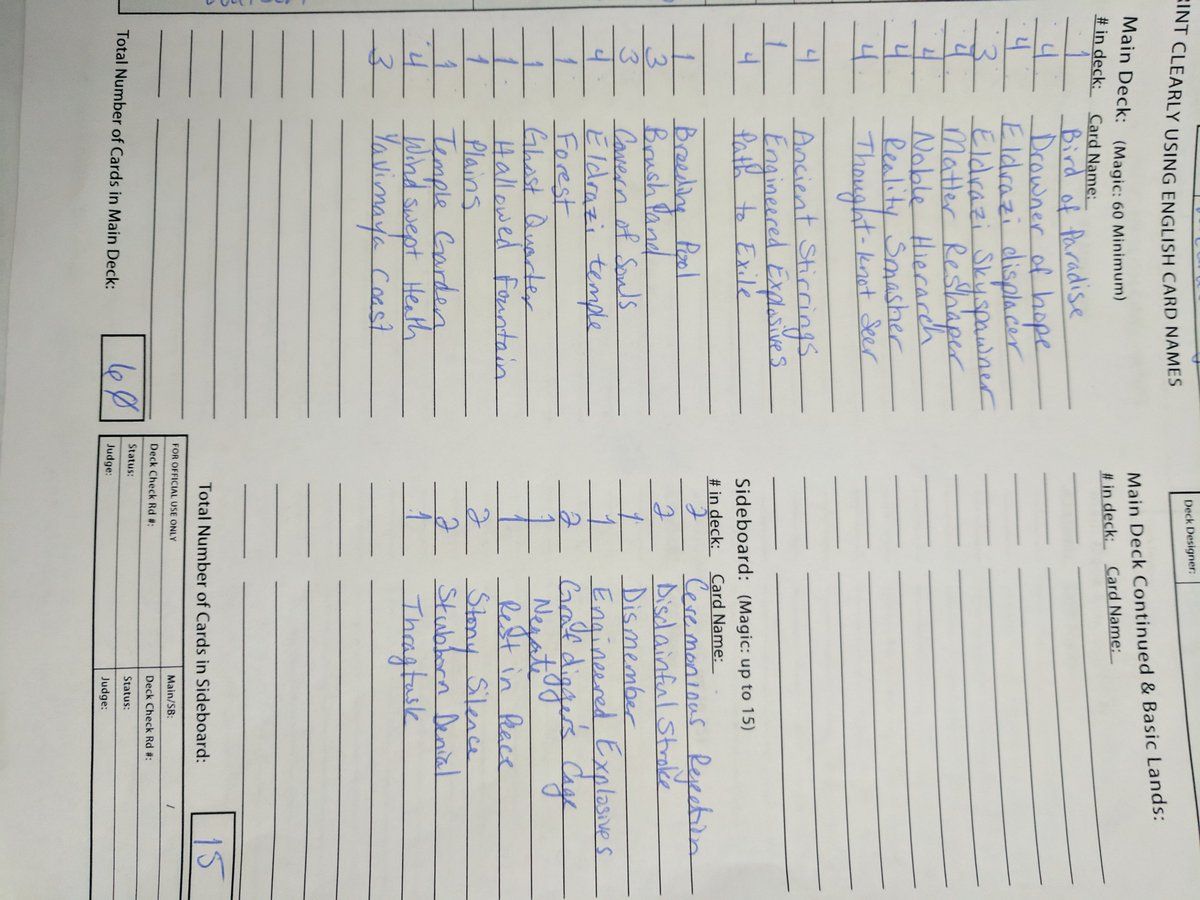 INT CLEARLY USING ENGLISH CARD NAMES
Deck Designer:
Main Deck: (Magic: 60 Minimum)
# in deck: Card Name:
1 Bird of Paradise
4 Drowner of hope
4 Eldrazi displacer
3 Eldrazi Skyspawner
4 Matter Reshaper
4 Noble Hierarch
4 Reality Smasher
4 Thought-knot Seer
4 Ancient Stirrings
1 Engineered Explosives
4 Path to Exile
1 Breeding Pool
3 Brushland
3 Cavern of Souls
4 Eldrazi temple
1 Forest
1 Ghost Quarter
1 Hallowed Fountain
1 Plains
1 Temple Garden
4 Windswept Heath
3 Yavimaya Coast
Total Number of Cards in Main Deck: 60
Main Deck Continued & Basic Lands:
# in deck: Card Name:
Sideboard: (Magic: up to 15)
# in deck: Card Name:
2 Ceremonious Rejection
2 Disdainful Stroke
1 Dismember
1 Engineered Explosives
2 Grafdigger's Cage
1 Negate
1 Rest in Peace
2 Stony Silence
2 Stubborn Denial
1 Thragtusk
Total Number of Cards in Sideboard: 15
FOR OFFICIAL USE ONLY
Main/SB: /
Deck Check Rd #:
Deck Check Rd #:
Status:
Status:
Judge:
Judge: